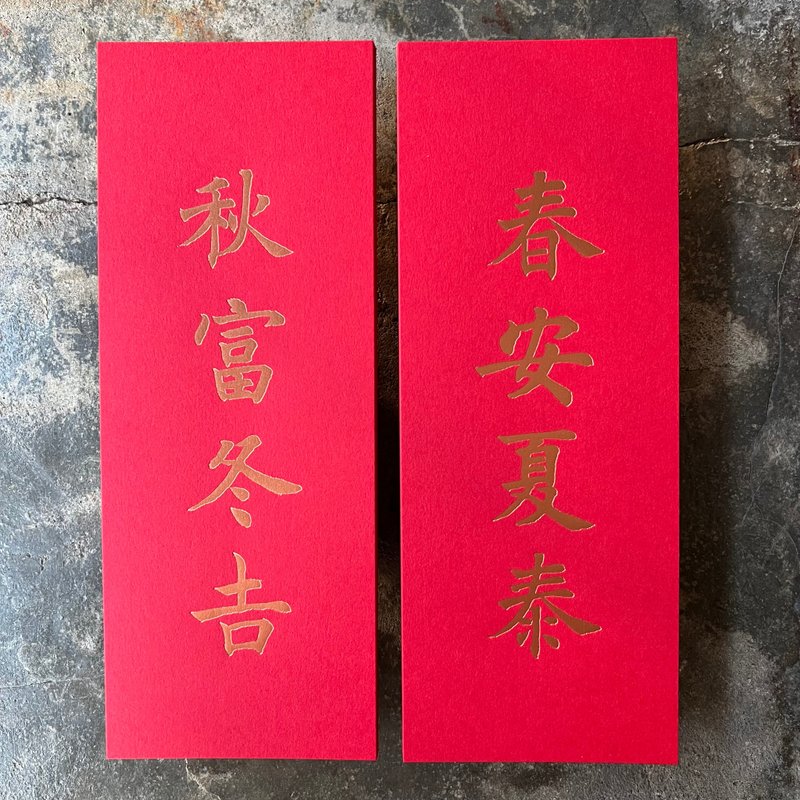 春安夏泰
秋富冬吉